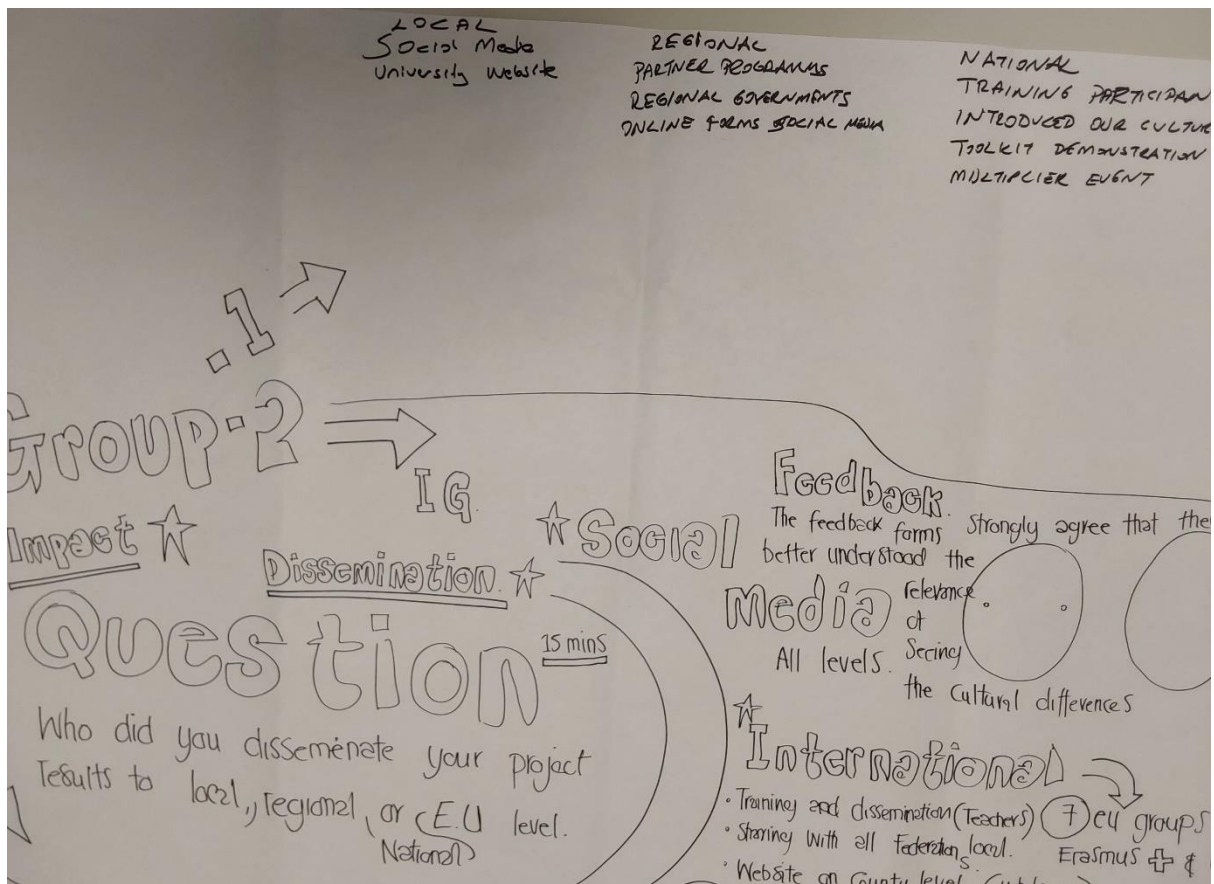 LOCAL
Social Media
University Website
REGIONAL
PARTNER PROGRAMMS
REGIONAL GOVERNMENTS
ONLINE FORMS SOCIAL MEDIA
NATIONAL
TRAINING PARTICIPAN
INTRODUCED OUR CULTUR
TOOLKIT DEMONSTRATION
MULTIPLIER EVENT
.1
GROUP-2
IG.
Impact
Dissemination.
Question
15 mins
Who did you disseminate your project
results to local, regional, or E.U level.
National
Social
Media
All levels.
Feedback.
The feedback forms strongly agree that the
better understood the
relevance
of
Seeing
the Cultural differences
International
· Training and dissemination (Teachers) 7 eu groups
· Sharing with all Federations, local. Erasmus + &
· Website on County level